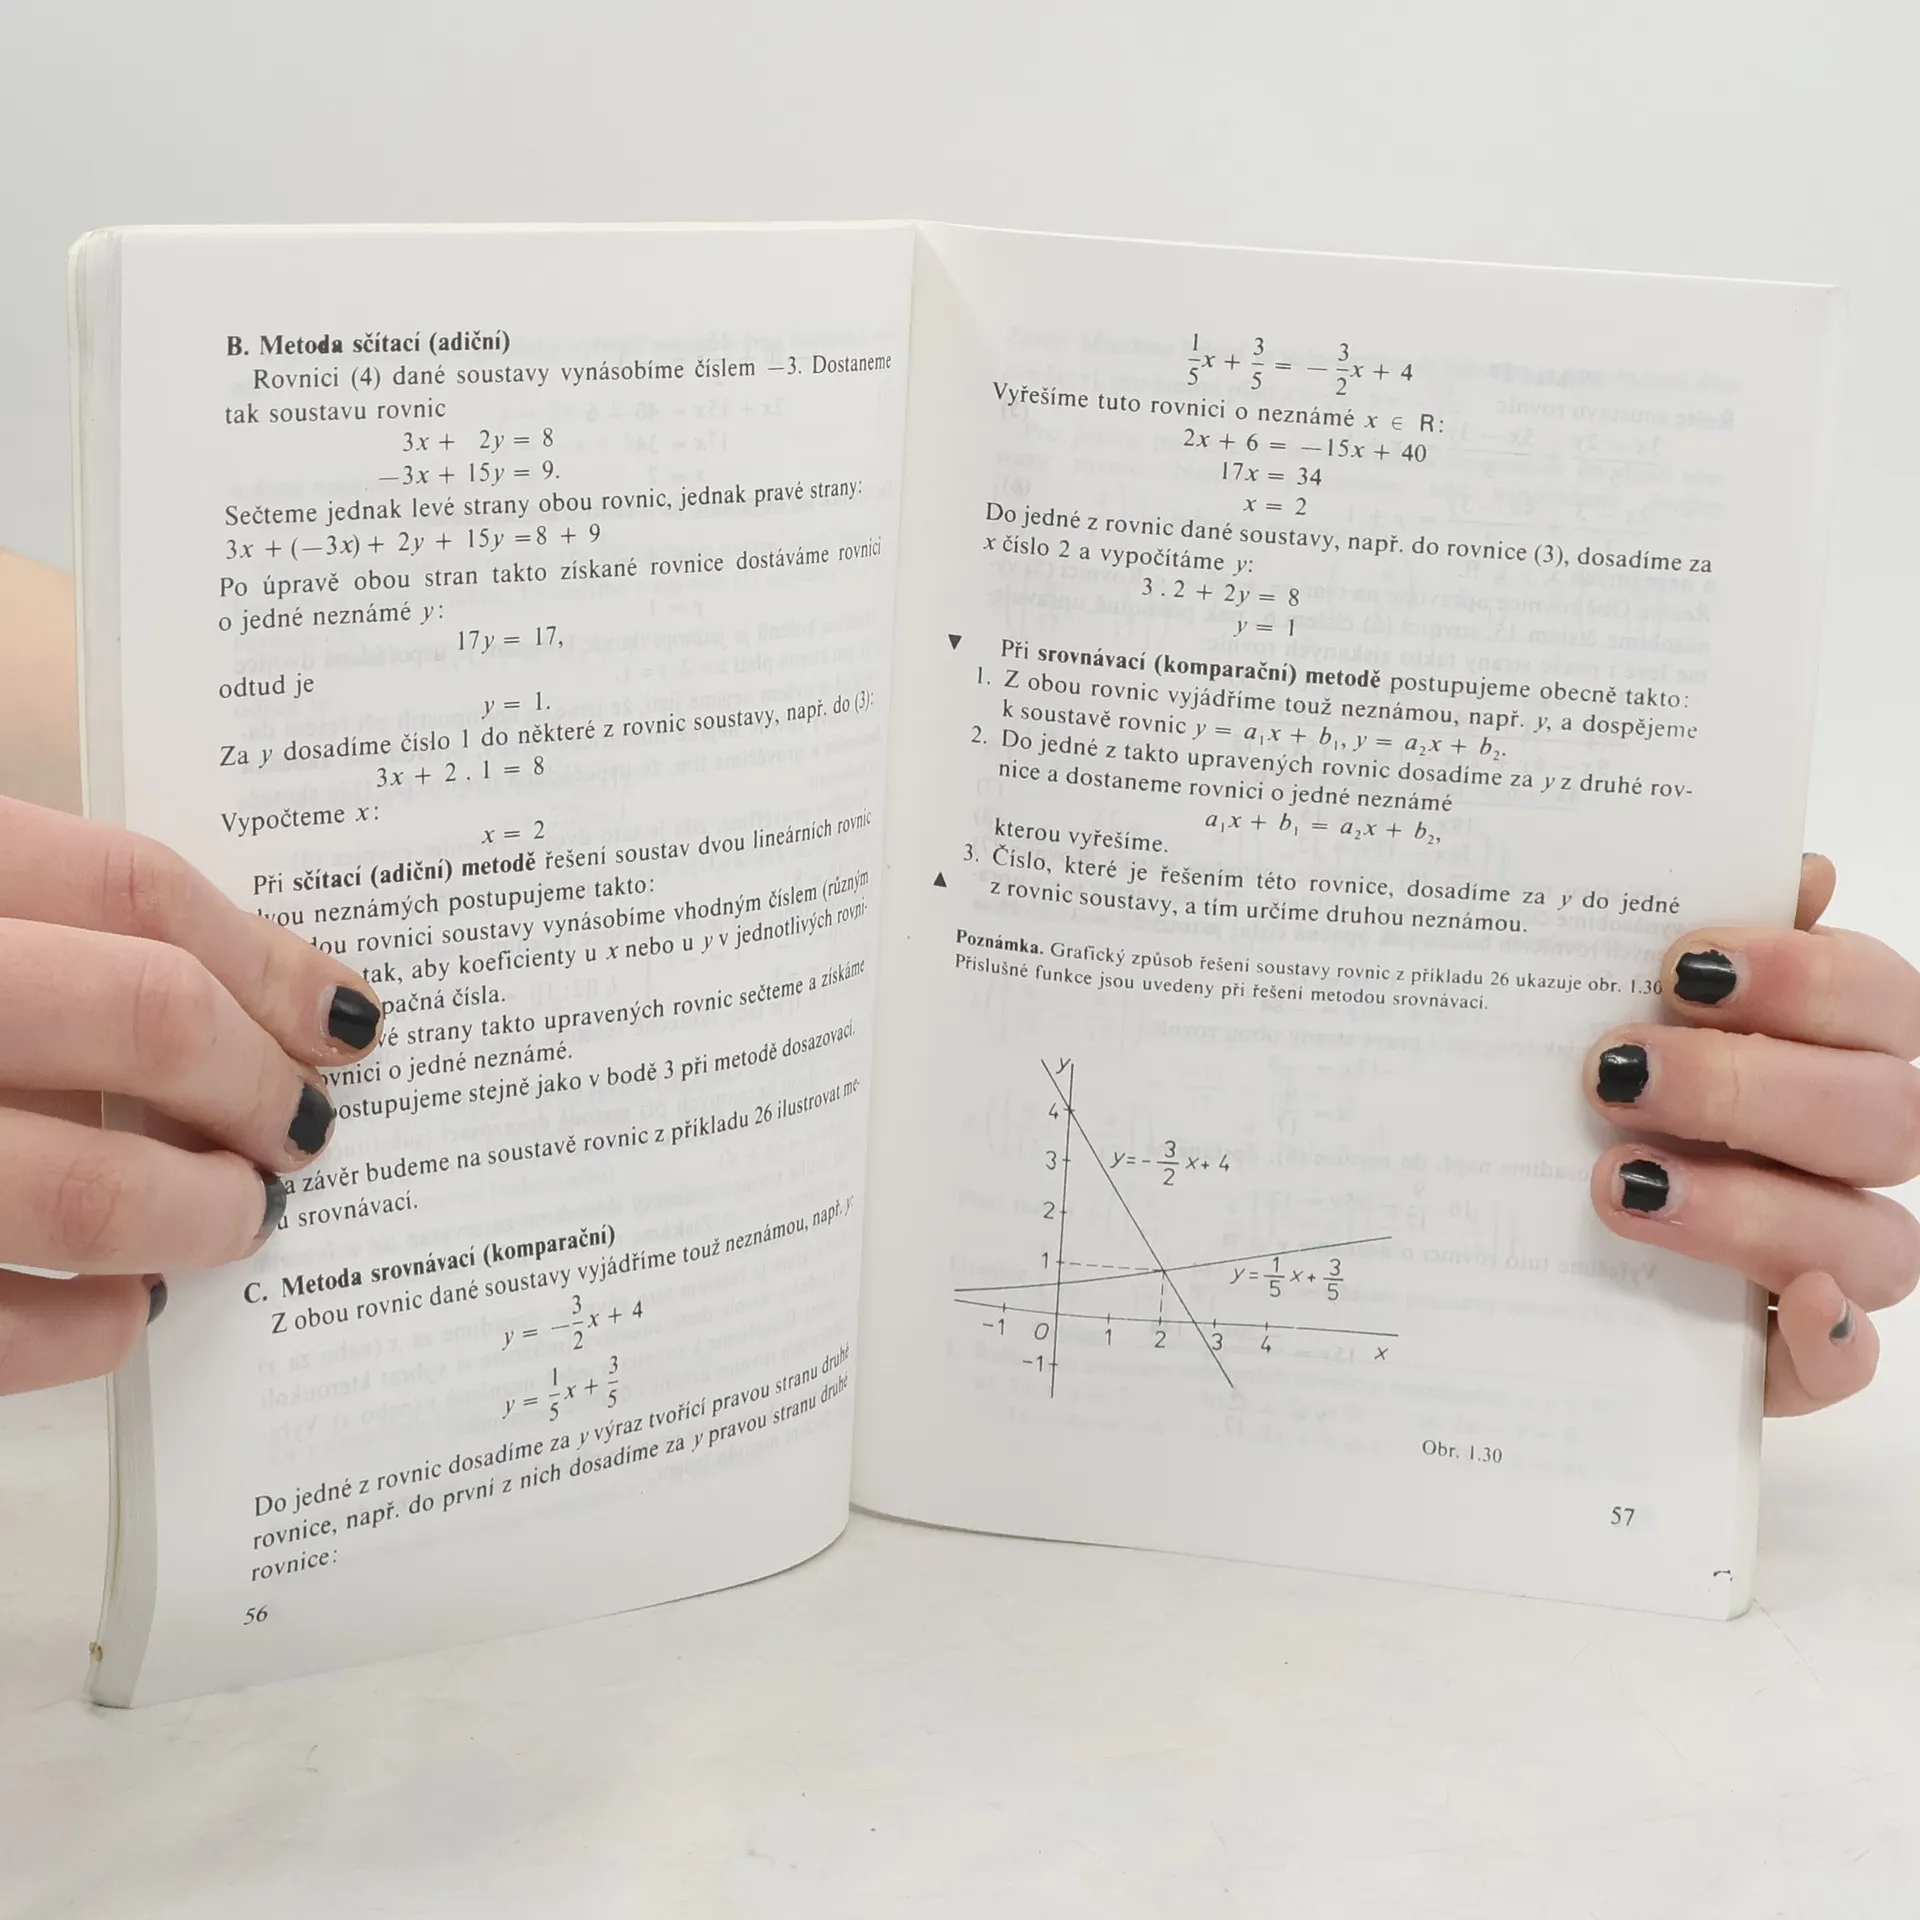 B. Metoda sčítací (adiční)
Rovnici (4) dané soustavy vynásobíme číslem −3. Dostaneme
tak soustavu rovnic
3x + 2y = 8
−3x + 15y = 9.
Sečteme jednak levé strany obou rovnic, jednak pravé strany:
3x + (−3x) + 2y + 15y = 8 + 9
Po úpravě obou stran takto získané rovnice dostáváme rovnici
o jedné neznámé y:
17y = 17,
odtud je
y = 1.
Za y dosadíme číslo 1 do některé z rovnic soustavy, např. do (3):
3x + 2 . 1 = 8
Vypočteme x:
x = 2
Při sčítací (adiční) metodě řešení soustav dvou lineárních rovnic
neznámých postupujeme takto:
rovnici soustavy vynásobíme vhodným číslem (různým
tak, aby koeficienty u x nebo u y v jednotlivých rovni-
čísla.
strany takto upravených rovnic sečteme a získáme
o jedné neznámé.
postupujeme stejně jako v bodě 3 při metodě dosazovací.
závěr budeme na soustavě rovnic z příkladu 26 ilustrovat me-
srovnávací.
C. Metoda srovnávací (komparační)
Z obou rovnic dané soustavy vyjádříme touž neznámou, např. y:
y = −3/2x + 4
y = 1/5x + 3/5
Do jedné z rovnic dosadíme za y výraz tvořící pravou stranu druhé
rovnice, např. do první z nich dosadíme za y pravou stranu druhé
rovnice:
56
1/5x + 3/5 = −3/2x + 4
Vyřešíme tuto rovnici o neznámé x ∈ R:
2x + 6 = −15x + 40
17x = 34
x = 2
Do jedné z rovnic dané soustavy, např. do rovnice (3), dosadíme za
x číslo 2 a vypočítáme y:
3 . 2 + 2y = 8
y = 1
▼ Při srovnávací (komparační) metodě postupujeme obecně takto:
1. Z obou rovnic vyjádříme touž neznámou, např. y, a dospějeme
k soustavě rovnic y = a₁x + b₁, y = a₂x + b₂.
2. Do jedné z takto upravených rovnic dosadíme za y z druhé rov-
nice a dostaneme rovnici o jedné neznámé
a₁x + b₁ = a₂x + b₂,
kterou vyřešíme.
3. Číslo, které je řešením této rovnice, dosadíme za y do jedné
▲ z rovnic soustavy, a tím určíme druhou neznámou.
Poznámka. Grafický způsob řešení soustavy rovnic z příkladu 26 ukazuje obr. 1.30
Příslušné funkce jsou uvedeny při řešení metodou srovnávací.
y
4
3
y=-3/2 x+ 4
2
1
y=1/5 x+ 3/5
-1 0 1 2 3 4 x
-1
Obr. 1.30
57